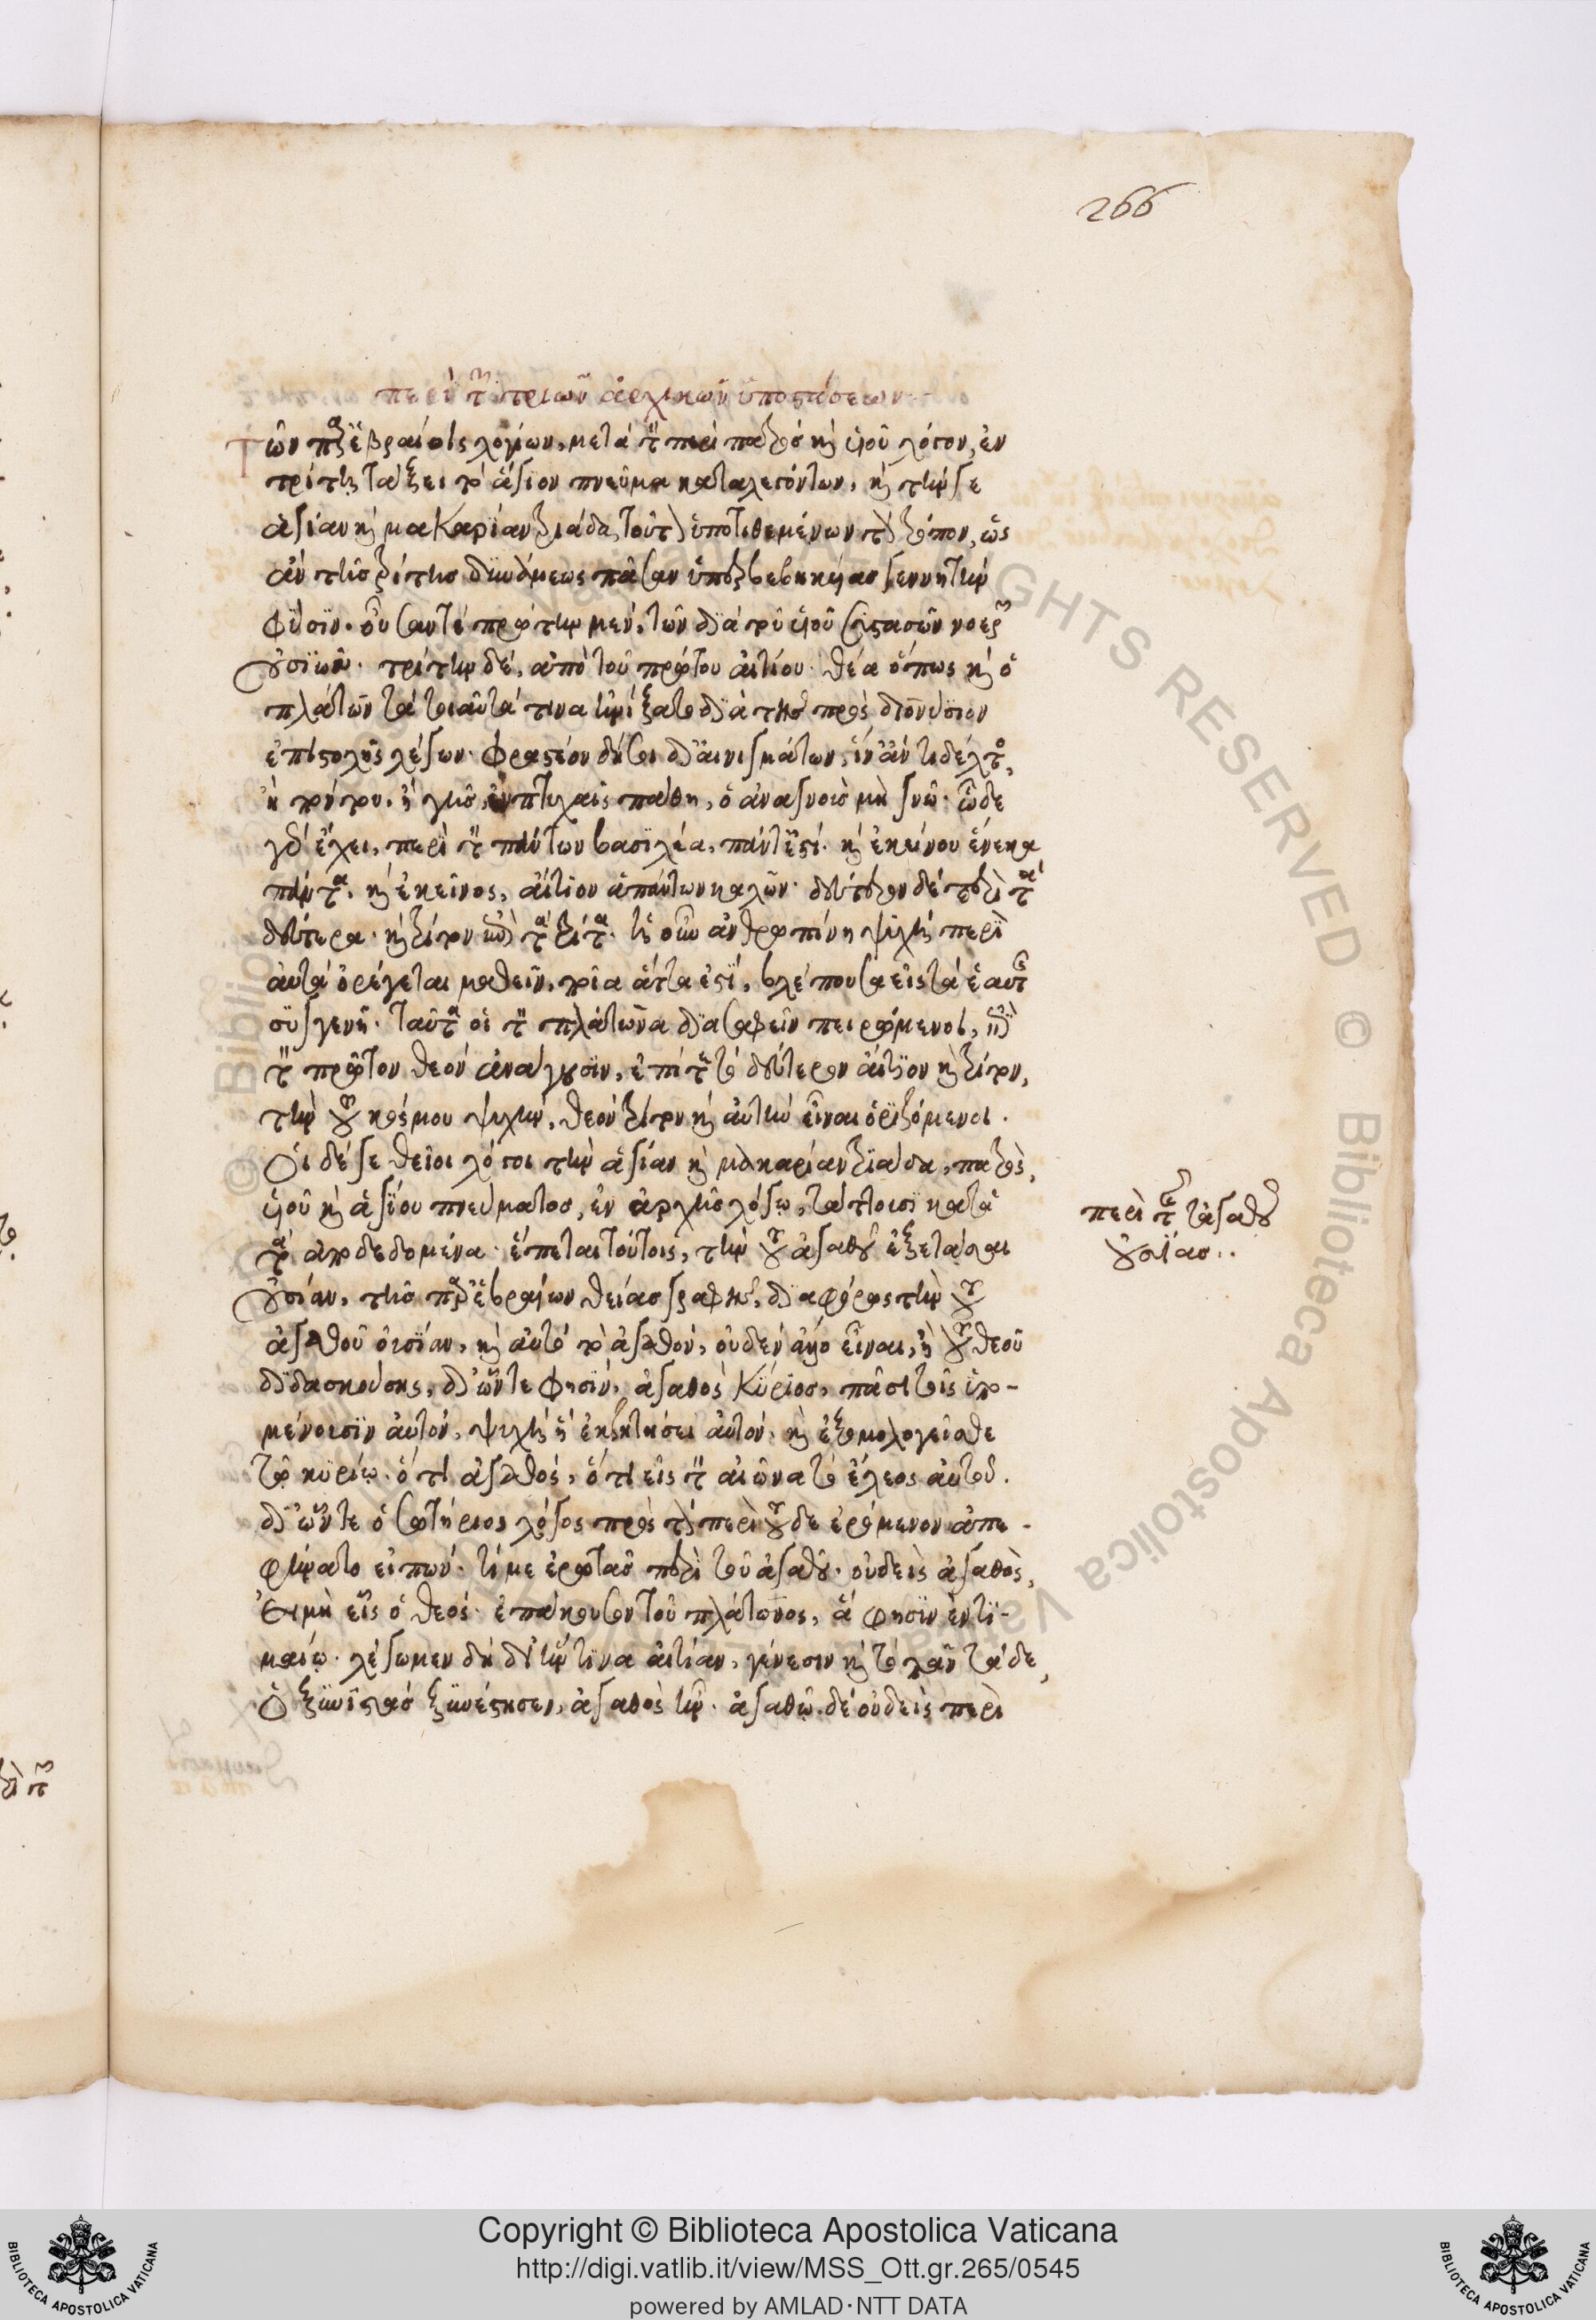 266
περὶ τῶν τριῶν ἀρχικῶν ὑποστάσεων
Τῶν παρ' ἑβραίοις λογίων, μετὰ τὸν περὶ πατρὸς καὶ υἱοῦ λόγον, ἐν
τρίτῃ τάξει τὸ ἅγιον πνεῦμα καταλεγόντων, καὶ τήν γε
ἁγίαν καὶ μακαρίαν τριάδα τοῦτον ὑποτιθεμένων τὸν τρόπον, ὡς
ἂν τῆς τρίτης δυνάμεως πᾶσαν ὑπερβεβηκυίας γεννητὴν
φύσιν. οὖσαν τε πρώτην μέν, τῶν διὰ τοῦ υἱοῦ συστασῶν νοερῶν
οὐσιῶν. τρίτην δέ, ἀπὸ τοῦ πρώτου αἰτίου. θέα ὅπως καὶ ὁ
πλάτων τὰ τοιαῦτά τινα ᾐνίξατο διὰ τῆς πρὸς διονύσιον
ἐπιστολῆς λέγων. φραστέον δή σοι δι' αἰνιγμάτων, ἵν' ἄν τι δέλτος,
ἢ πόντου, ἢ γῆς, ἐν πτυχαῖς πάθη, ὁ ἀναγνοὺς μὴ γνῷ. ὧδε
γὰρ ἔχει, περὶ τὸν πάντων βασιλέα, πάντ' ἐστί. καὶ ἐκείνου ἕνεκα
πάντα, καὶ ἐκεῖνος, αἴτιον ἁπάντων καλῶν. δεύτερον δὲ περὶ τὰ
δεύτερα. καὶ τρίτον περὶ τὰ τρίτα. ἡ οὖν ἀνθρωπίνη ψυχὴ περὶ
αὐτὰ ὀρέγεται μαθεῖν, ποῖα ἄττα ἐστί, βλέπουσα εἰς τὰ ἑαυτῆς
συγγενῆ. ταῦτα οἱ τὸν πλάτωνα διασαφεῖν πειρώμενοι, ἐπὶ
τὸν πρῶτον θεὸν ἀνάγουσιν, ἐπί τε τὸ δεύτερον αἴτιον καὶ τρίτον,
τὴν τοῦ κόσμου ψυχήν, θεὸν τρίτον καὶ αὐτὴν εἶναι ὁριζόμενοι.
Οἱ δέ γε θεῖοι λόγοι τὴν ἁγίαν καὶ μακαρίαν τριάδα, πατρὸς,
υἱοῦ καὶ ἁγίου πνεύματος, ἐν ἀρχῆς λόγῳ, τάττουσι κατὰ
τὰ ἀποδεδομένα. ἕπεται τούτοις, τὴν τοῦ ἀγαθοῦ ἐξετάσαι
οὐσίαν, τῆς παρ' ἑβραίων θείας γραφῆς, διαφόρως τὴν τοῦ
ἀγαθοῦ οὐσίαν, καὶ αὐτὸ τὸ ἀγαθόν, οὐδὲν ἄλλο εἶναι, ἢ τοῦ θεοῦ
διδασκούσης, δι' ὧν τε φησίν, ἀγαθὸς Κύριος, πᾶσι τοῖς ὑπο-
μένουσιν αὐτόν, ψυχῇ ᾗ ἐκζητήσει αὐτόν. καὶ ἐξομολογεῖσθε
τῷ κυρίῳ. ὅτι ἀγαθός, ὅτι εἰς τὸν αἰῶνα τὸ ἔλεος αὐτοῦ.
δι' ὧν τε ὁ σωτήριος λόγος πρὸς τὸν περὶ τοῦδε ἐρόμενον ἀπε-
φήνατο εἰπών. τί με ἐρωτᾷς περὶ τοῦ ἀγαθοῦ. οὐδεὶς ἀγαθὸς,
εἰ μὴ εἷς ὁ θεός. ἐπάκουσον τοῦ πλάτωνος, ἅ φησιν ἐν τι-
μαίῳ. λέγωμεν δὴ δι' ἥντινα αἰτίαν, γένεσιν καὶ τὸ πᾶν τόδε,
ὁ ξυνιστὰς ξυνέστησεν, ἀγαθὸς ἦν. ἀγαθῷ δὲ οὐδεὶς περὶ
περὶ τῆς τἀγαθοῦ
οὐσίας..
Copyright © Biblioteca Apostolica Vaticana
http://digi.vatlib.it/view/MSS_Ott.gr.265/0545
powered by AMLAD·NTT DATA
BIBLIOTECA APOSTOLICA VATICANA
BIBLIOTECA APOSTOLICA VATICANA